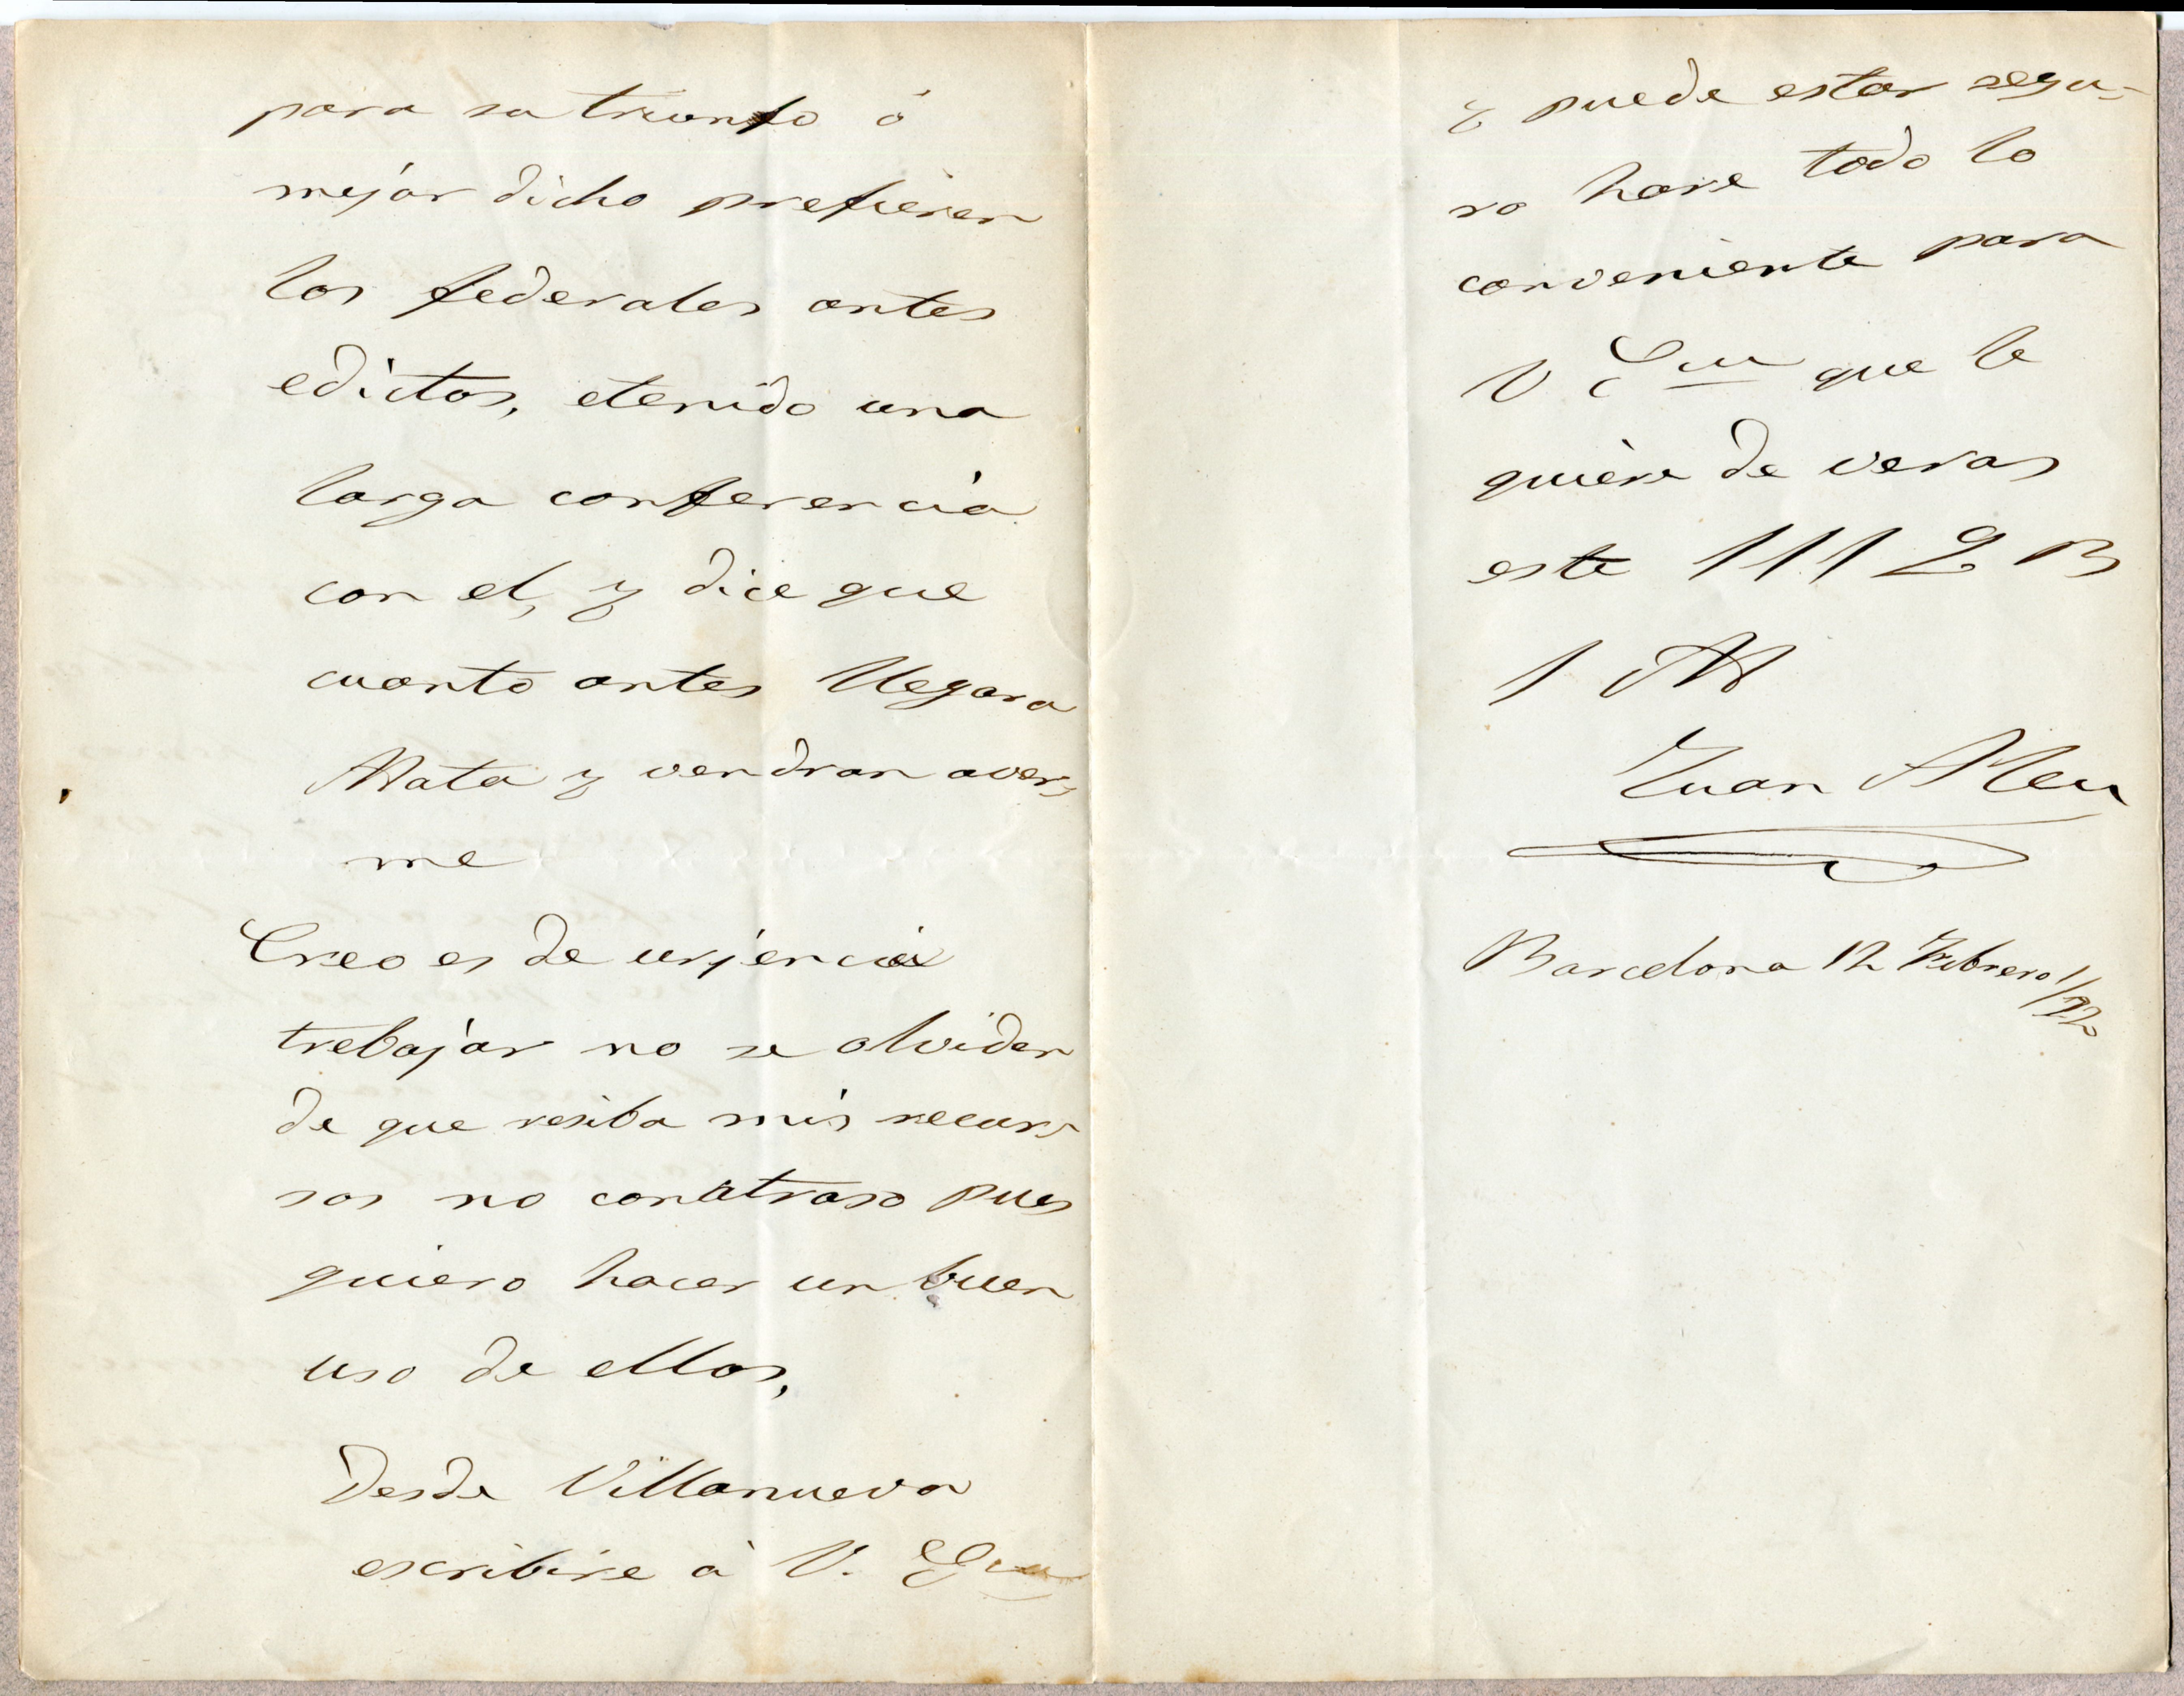 para su triunfo ó
mejor dicho prefieren
los federales antes
edictos, etenido una
larga conferencia
con el, y dice que
cuanto antes llegara
Mata y vendran aver-
me
Creo es de urjencia
trebajar no se olviden
de que resiba mis recur-
sos no conatraso pues
quiero hacer un buen
uso de ellos,
Desde Villanueva
escribire á V. E
y puede estar segu-
ro hare todo lo
conveniente para
V E que le
quiere de veras
este
Juan Aleu
Barcelona 12 Febrero